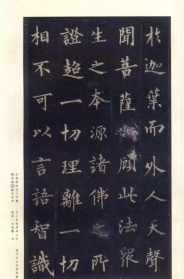 於迦葉而外人天聲
聞菩薩 此法眾
生之本源諸佛之所
證超一切理離一切
相不可以言語智識